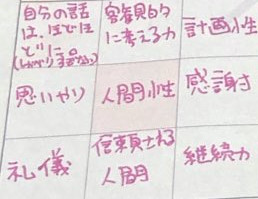 自分の話
は、ほどほ
どに
(しゃべりすぎない)
客観的
に考える力
計画性
思いやり
人間性
感謝
礼儀
信頼される
人間
継続力